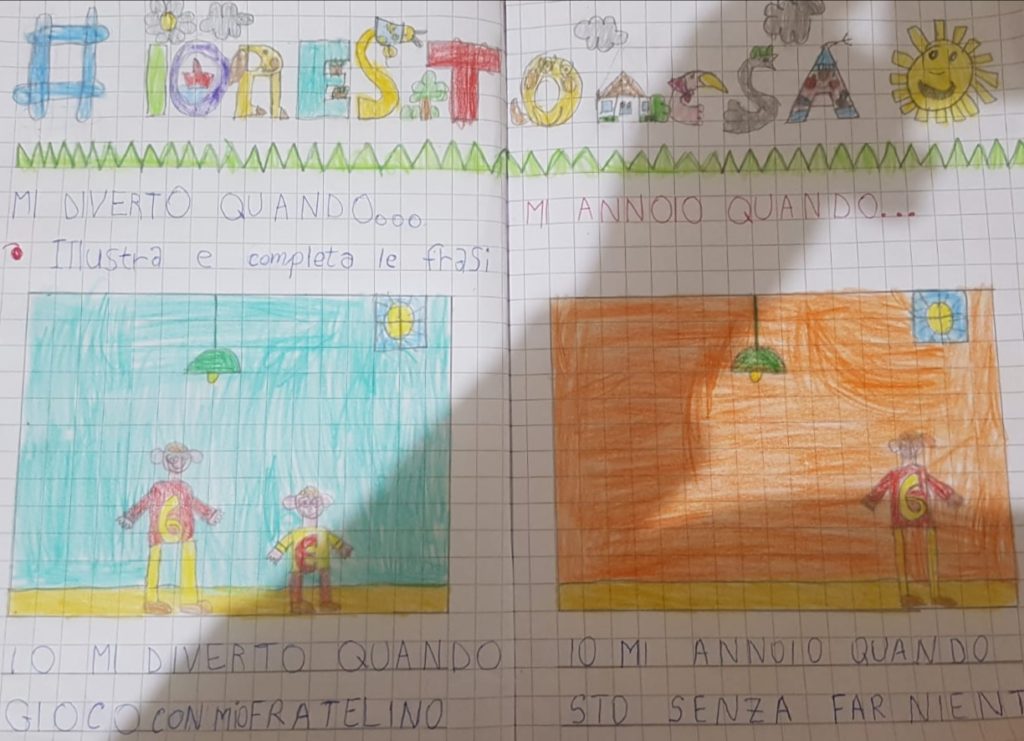 #IORESTO CASA
MI DIVERTO QUANDO....
Illustra e completa le frasi
6
6
IO MI DIVERTO QUANDO
GIOCO CON MIO FRATELINO
MI ANNOIO QUANDO...
6
IO MI ANNOIO QUANDO
STO SENZA FAR NIENT